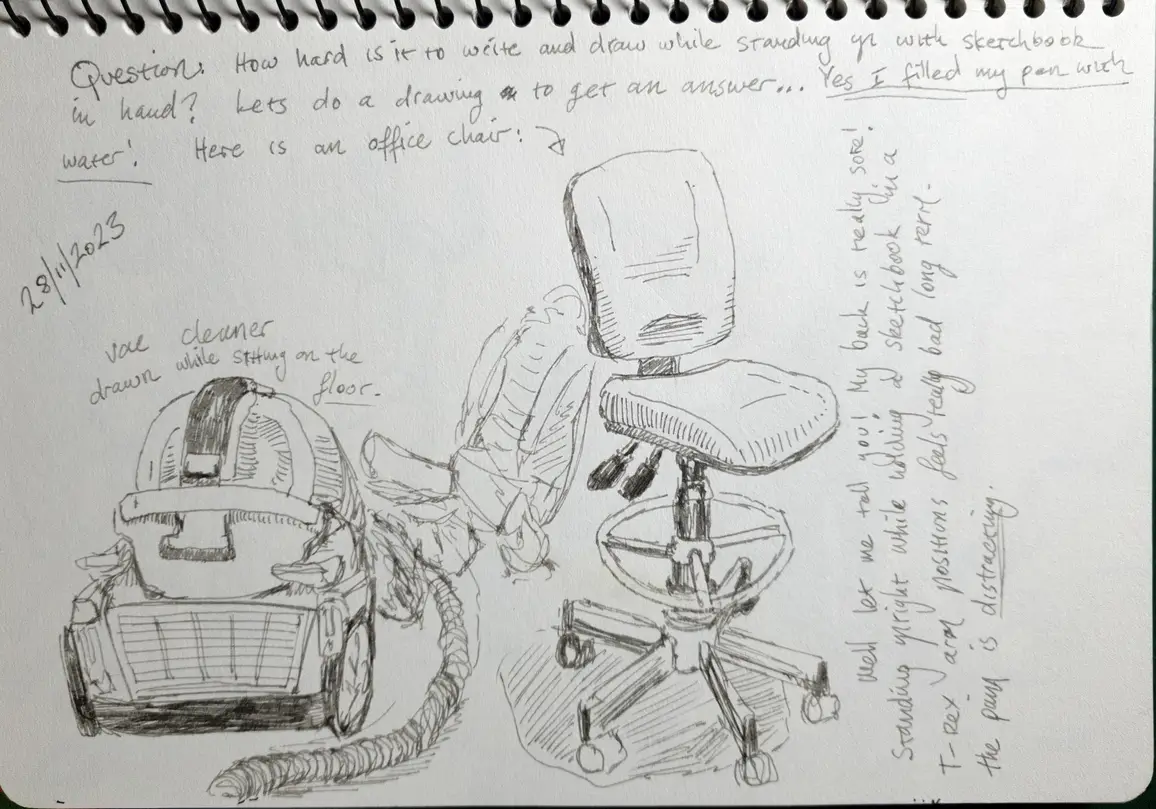 Question: How hard is it to write and draw while standing yr with sketchbook
in hand? Lets do a drawing to get an answer... Yes I filled my pen with
water! Here is an office chair:
28/11/2023
vac cleaner
drawn while sitting on the
floor.
Well let me tell you! My back is really sore!
Standing upright while holding a sketchbook in a
T-rex arm positions feels really bad long term.
the pain is distracting.